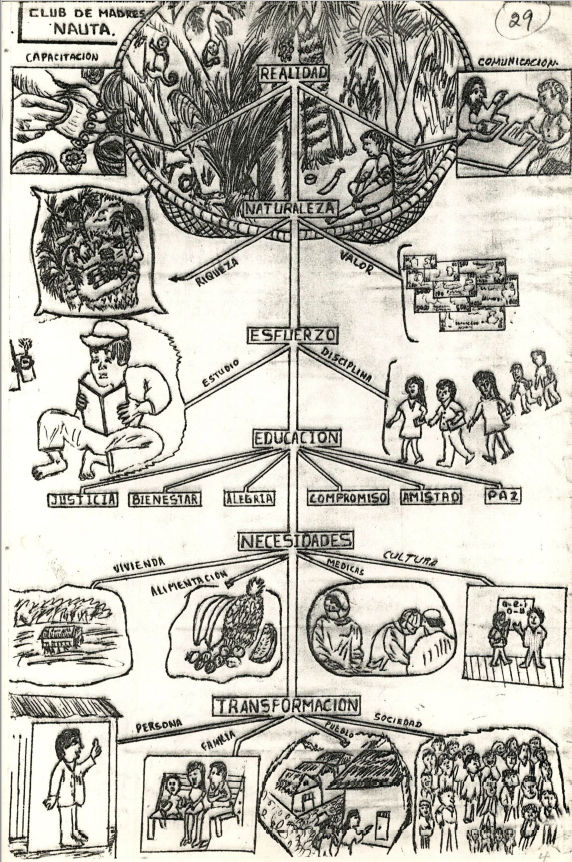 CLUB DE MADRES
"NAUTA.
29
CAPACITACIÓN
REALIDAD
COMUNICACIÓN.
NATURALEZA
RIQUEZA
VALOR
ESFUERZO
ESTUDIO
DISCIPLINA
EDUCACIÓN
JUSTICIA
BIENESTAR
ALEGRIA
COMPROMISO
AMISTAD
PAZ
NECESIDADES
VIVIENDA
ALIMENTACION
MEDICAS
CULTURA
a-e-i
o-u
TRANSFORMACION
PERSONA
FAMILIA
PUEBLO
SOCIEDAD